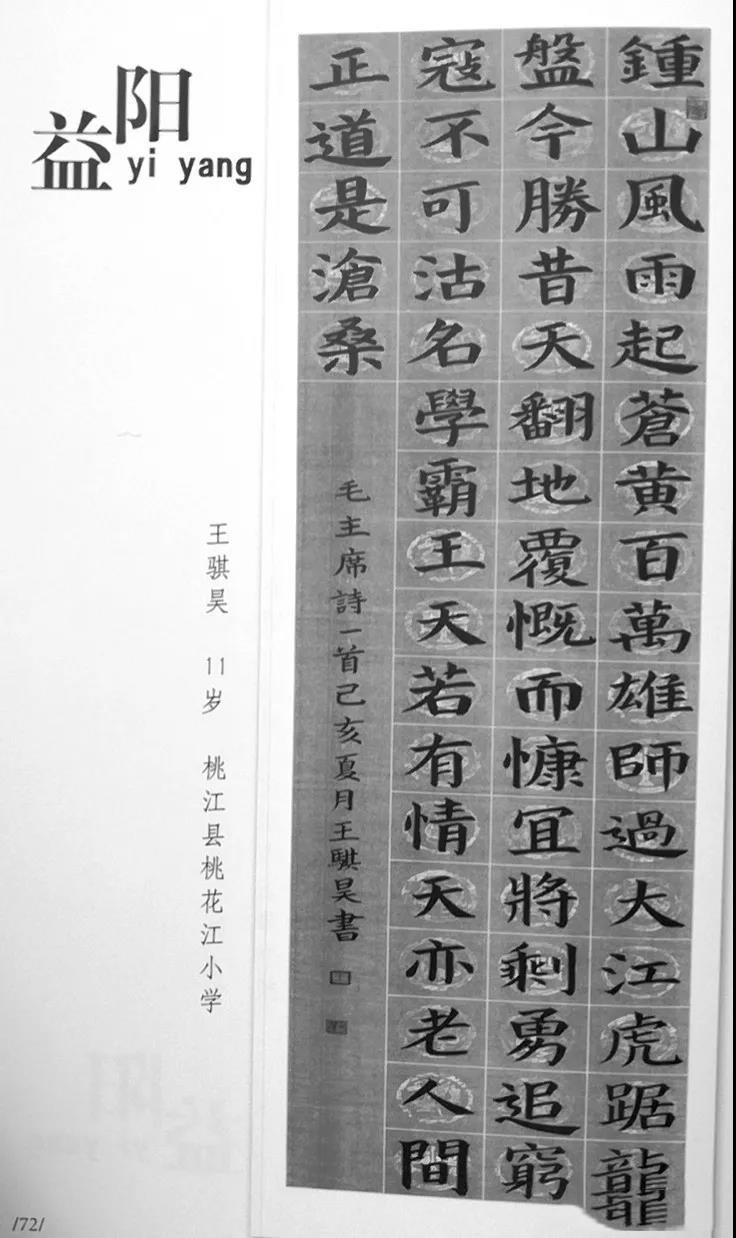 益阳
yi yang
鍾山風雨起蒼黄百萬雄師過大江虎踞龍
盤今勝昔天翻地覆慨而慷冝將剩勇追窮
寇不可沽名學霸王天若有情天亦老人間
正道是滄桑
毛主席詩一首己亥夏月王騏昊書
王骐昊 11岁 桃江县桃花江小学
/72/